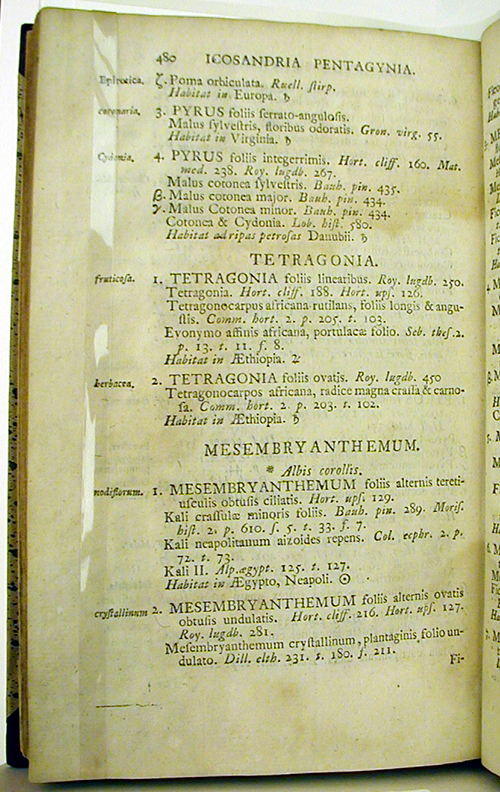 480 ICOSANDRIA PENTAGYNIA.
ζ. Poma orbiculata. Ruell. ſtirp.
Habitat in Europa. ♄
coronaria. 3. PYRUS foliis ſerrato-anguloſis.
Malus ſylveſtris, floribus odoratis. Gron. virg. 55.
Habitat in Virginia. ♄
Cydonia. 4. PYRUS foliis integerrimis. Hort. cliff. 160. Mat.
med. 238. Roy. lugdb. 267.
Malus cotonea ſylveſtris. Bauh. pin. 435.
β. Malus cotonea major. Bauh. pin. 434.
γ. Malus Cotonea minor. Bauh. pin. 434.
Cotonea & Cydonia. Lob. hiſt. 580.
Habitat ad ripas petroſas Danubii. ♄
TETRAGONIA.
fruticoſa. 1. TETRAGONIA foliis linearibus. Roy. lugdb. 250.
Tetragonia. Hort. cliff. 188. Hort. upſ. 126.
Tetragonocarpus africana rutilans, foliis longis & angu-
ſtis. Comm. hort. 2. p. 205. t. 103.
Evonymo affinis africana, portulacæ folio. Seb. theſ. 2.
p. 13. t. 11. f. 8.
Habitat in Æthiopia. ♃
herbacea. 2. TETRAGONIA foliis ovatis. Roy. lugdb. 450
Tetragonocarpos africana, radice magna craſſa & carno-
ſa. Comm. hort. 2. p. 203. t. 102.
Habitat in Æthiopia. ♄
MESEMBRYANTHEMUM.
* Albis corollis.
nodiflorum. 1. MESEMBRYANTHEMUM foliis alternis tereti-
uſculis obtuſis ciliatis. Hort. upſ. 129.
Kali craſſulæ minoris foliis. Bauh. pin. 289. Moriſ.
hiſt. 2. p. 610. ſ. 5. t. 33. f. 7.
Kali neapolitanum aizoides repens. Col. ecphr. 2. p.
72. t. 73.
Kali II. Alp. ægypt. 125. t. 127.
Habitat in Ægypto, Neapoli. ☉
cryſtallinum 2. MESEMBRYANTHEMUM foliis alternis ovatis
obtuſis undulatis. Hort. cliff. 216. Hort. upſ. 127.
Roy. lugdb. 281.
Meſembryanthemum cryſtallinum, plantaginis folio un-
dulato. Dill. elth. 231. t. 180. f. 211.
Fi-